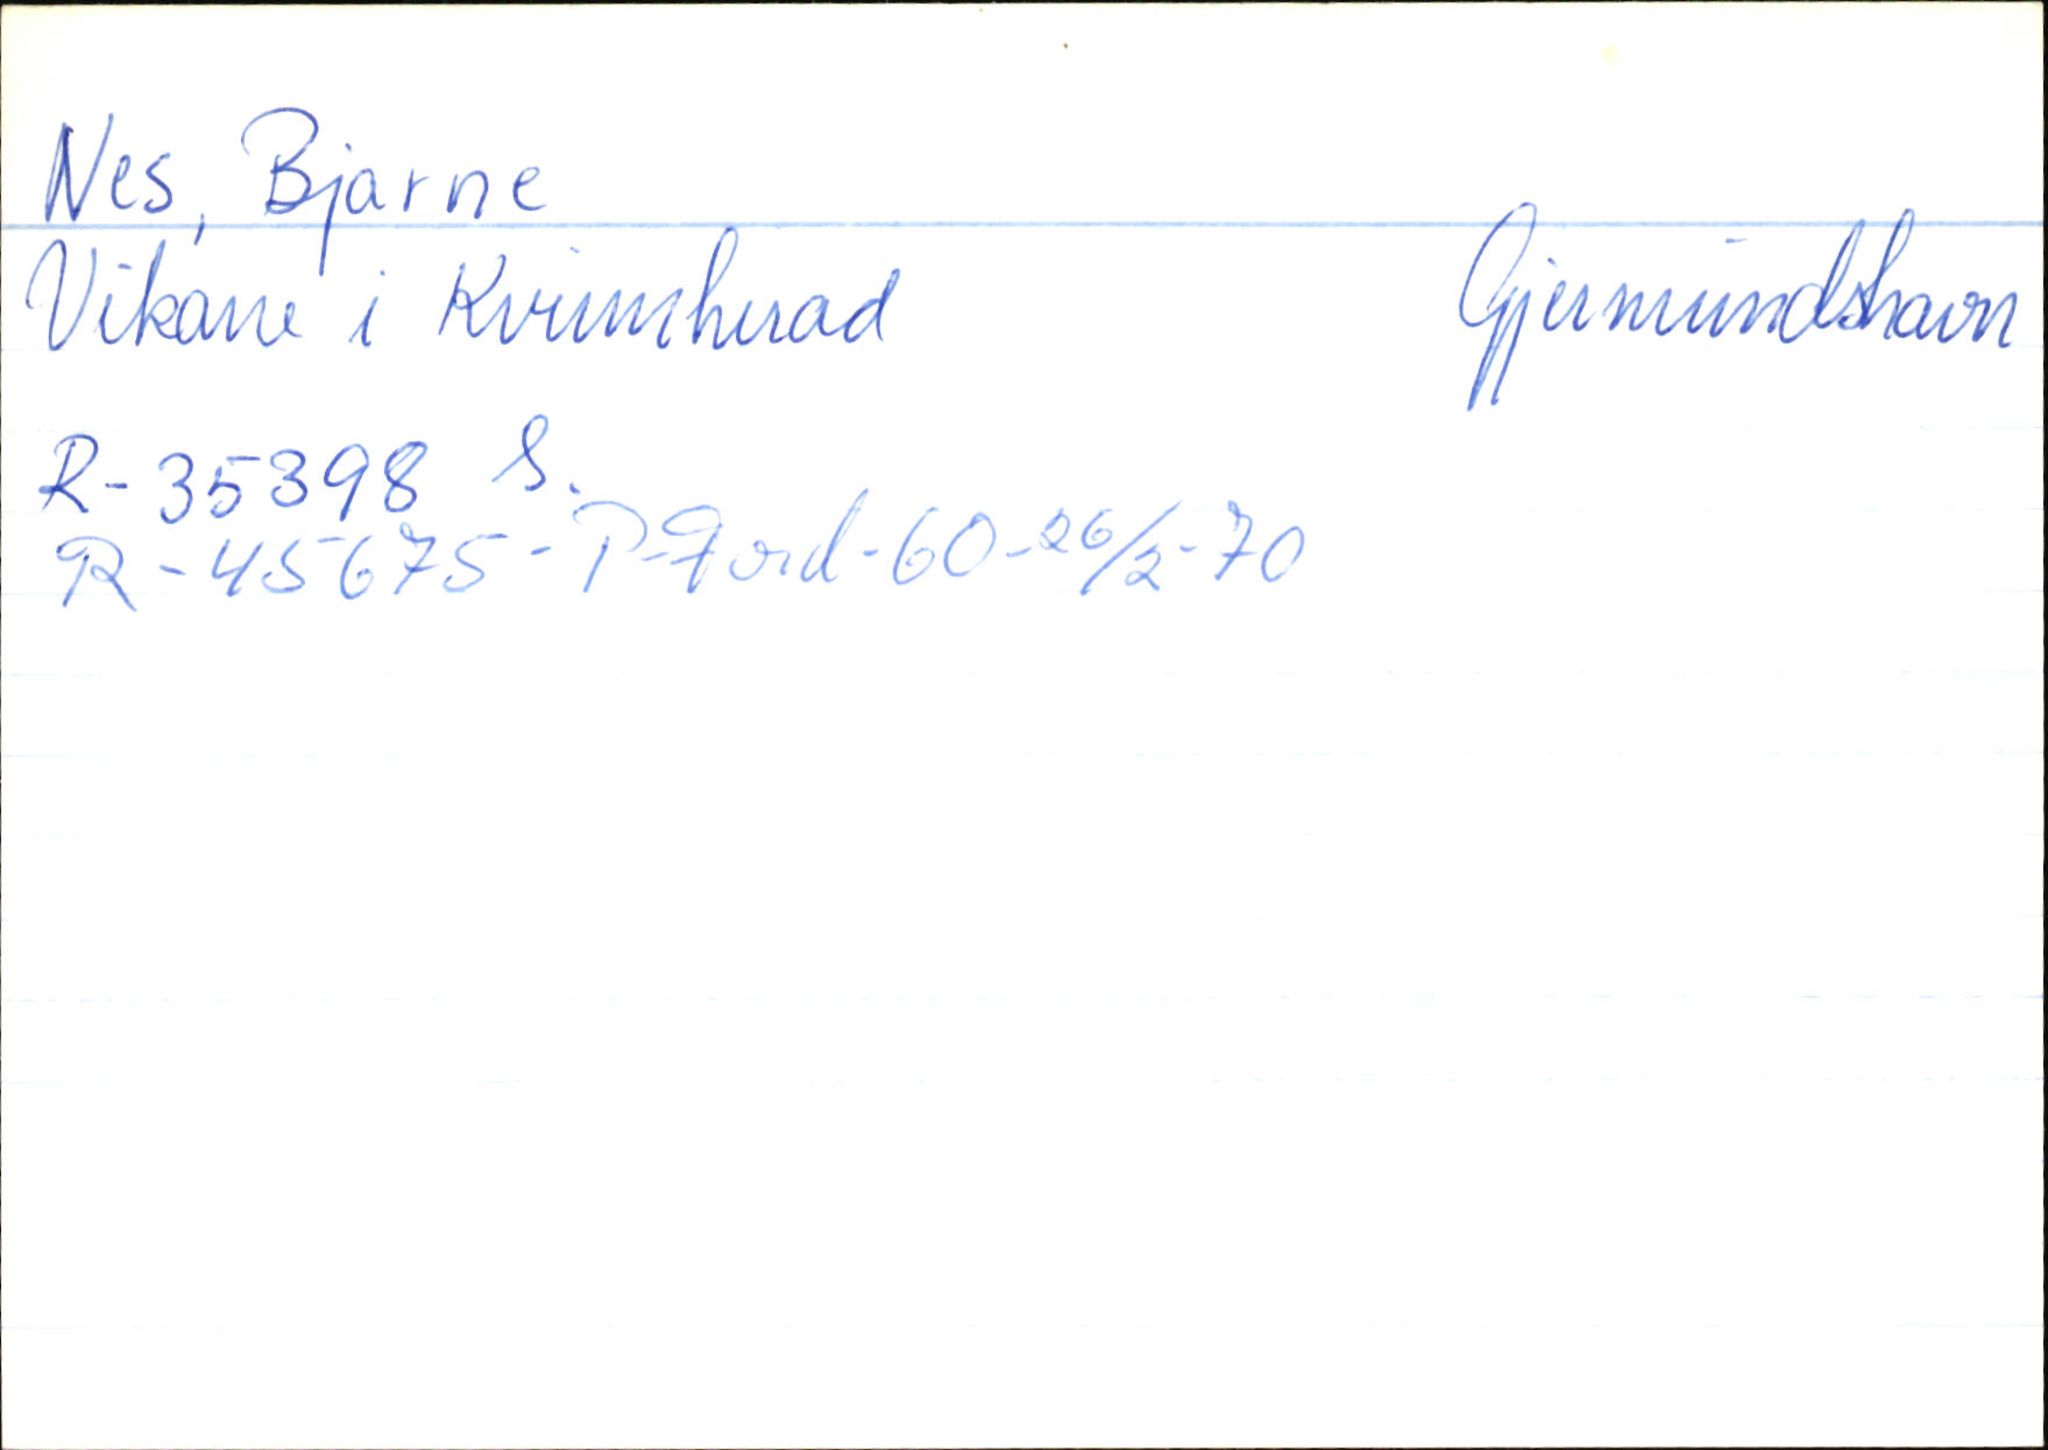 Nes, Bjarne
Vikane i Kvinnherad Gjermundshavn
R-35398 S.
R-45675-P-Ford-60-26/2-70